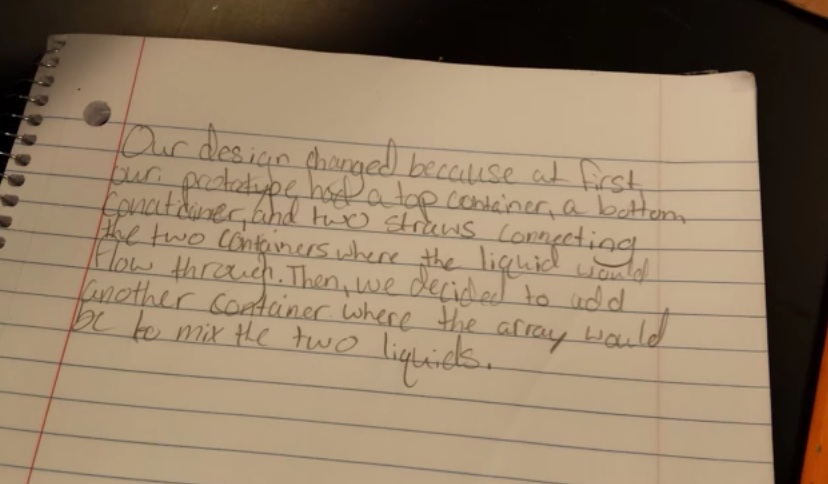 Our design changed because at first
our prototype had a top container, a bottom
conatdainer, and two straws connecting
the two containers where the liquid would
flow through. Then, we decided to add
another container where the array would
be to mix the two liquids.